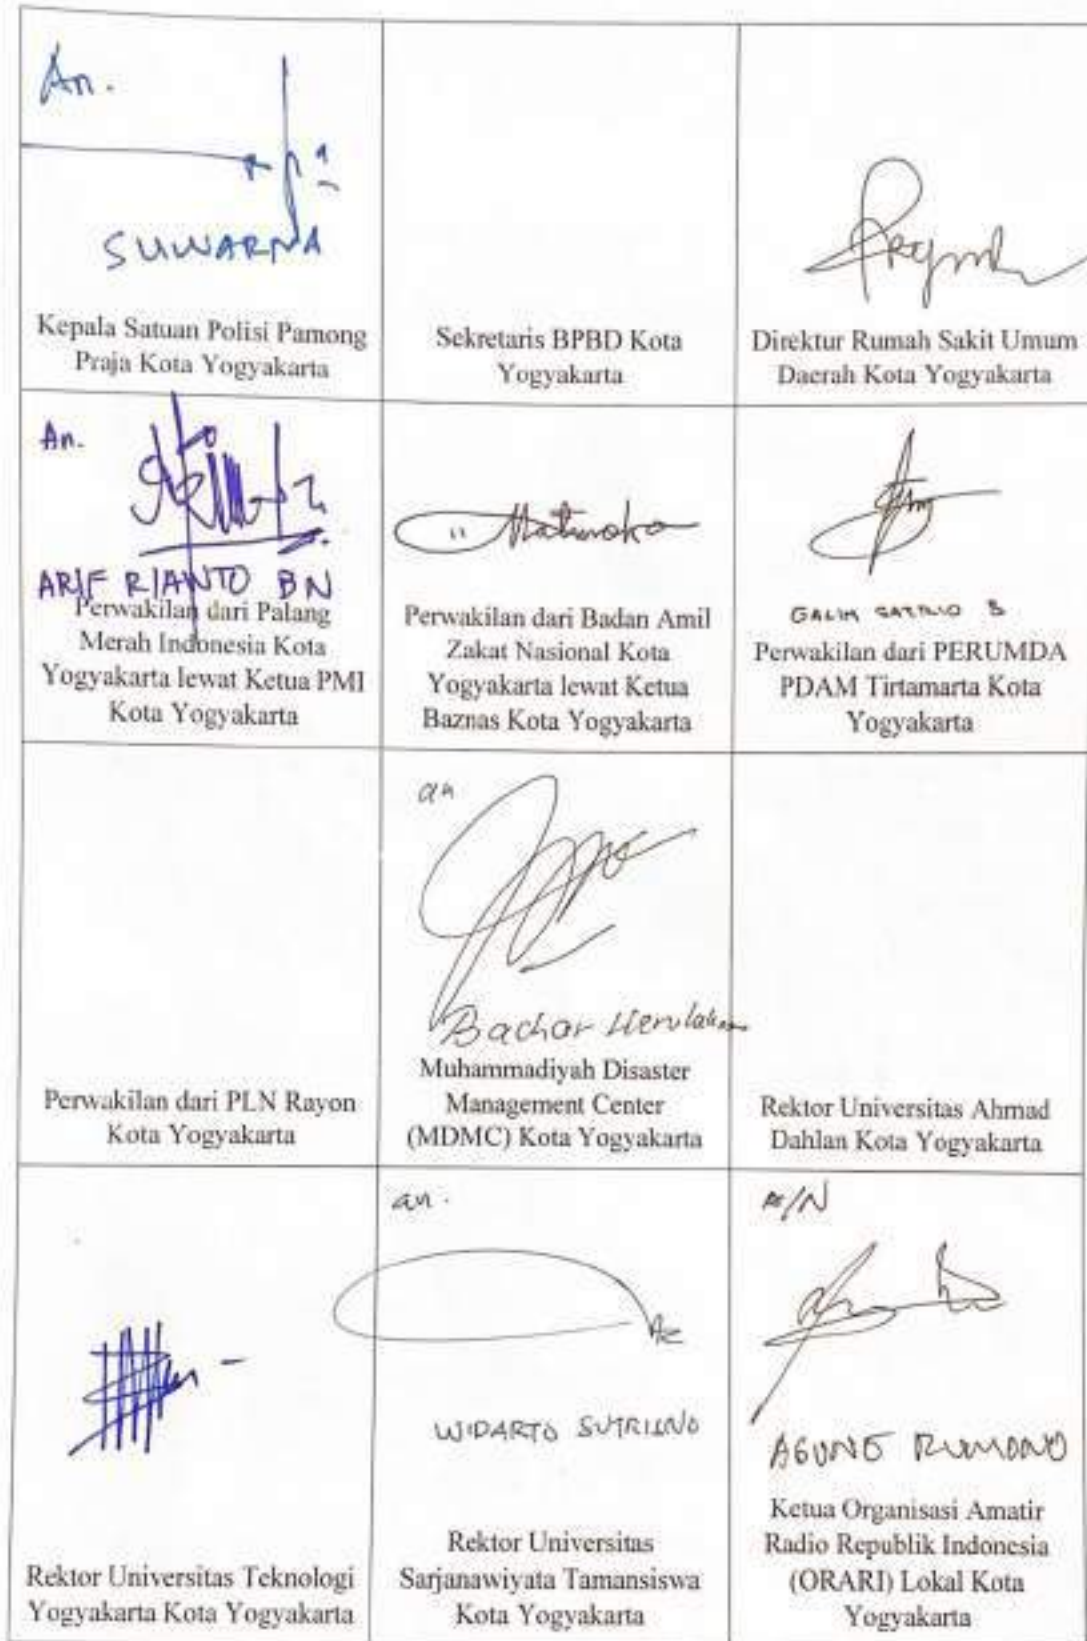 An.
SUWARNA
Kepala Satuan Polisi Pamong
Praja Kota Yogyakarta
Sekretaris BPBD Kota
Yogyakarta
Direktur Rumah Sakit Umum
Daerah Kota Yogyakarta
An.
ARIF RIANTO BN
Perwakilan dari Palang
Merah Indonesia Kota
Yogyakarta lewat Ketua PMI
Kota Yogyakarta
Perwakilan dari Badan Amil
Zakat Nasional Kota
Yogyakarta lewat Ketua
Baznas Kota Yogyakarta
GALIH SATRIO B
Perwakilan dari PERUMDA
PDAM Tirtamarta Kota
Yogyakarta
Perwakilan dari PLN Rayon
Kota Yogyakarta
an
Bachar
Muhammadiyah Disaster
Management Center
(MDMC) Kota Yogyakarta
Rektor Universitas Ahmad
Dahlan Kota Yogyakarta
Rektor Universitas Teknologi
Yogyakarta Kota Yogyakarta
an.
WIDARTO SUTRISNO
Rektor Universitas
Sarjanawiyata Tamansiswa
Kota Yogyakarta
A/N
AGUNG
Ketua Organisasi Amatir
Radio Republik Indonesia
(ORARI) Lokal Kota
Yogyakarta